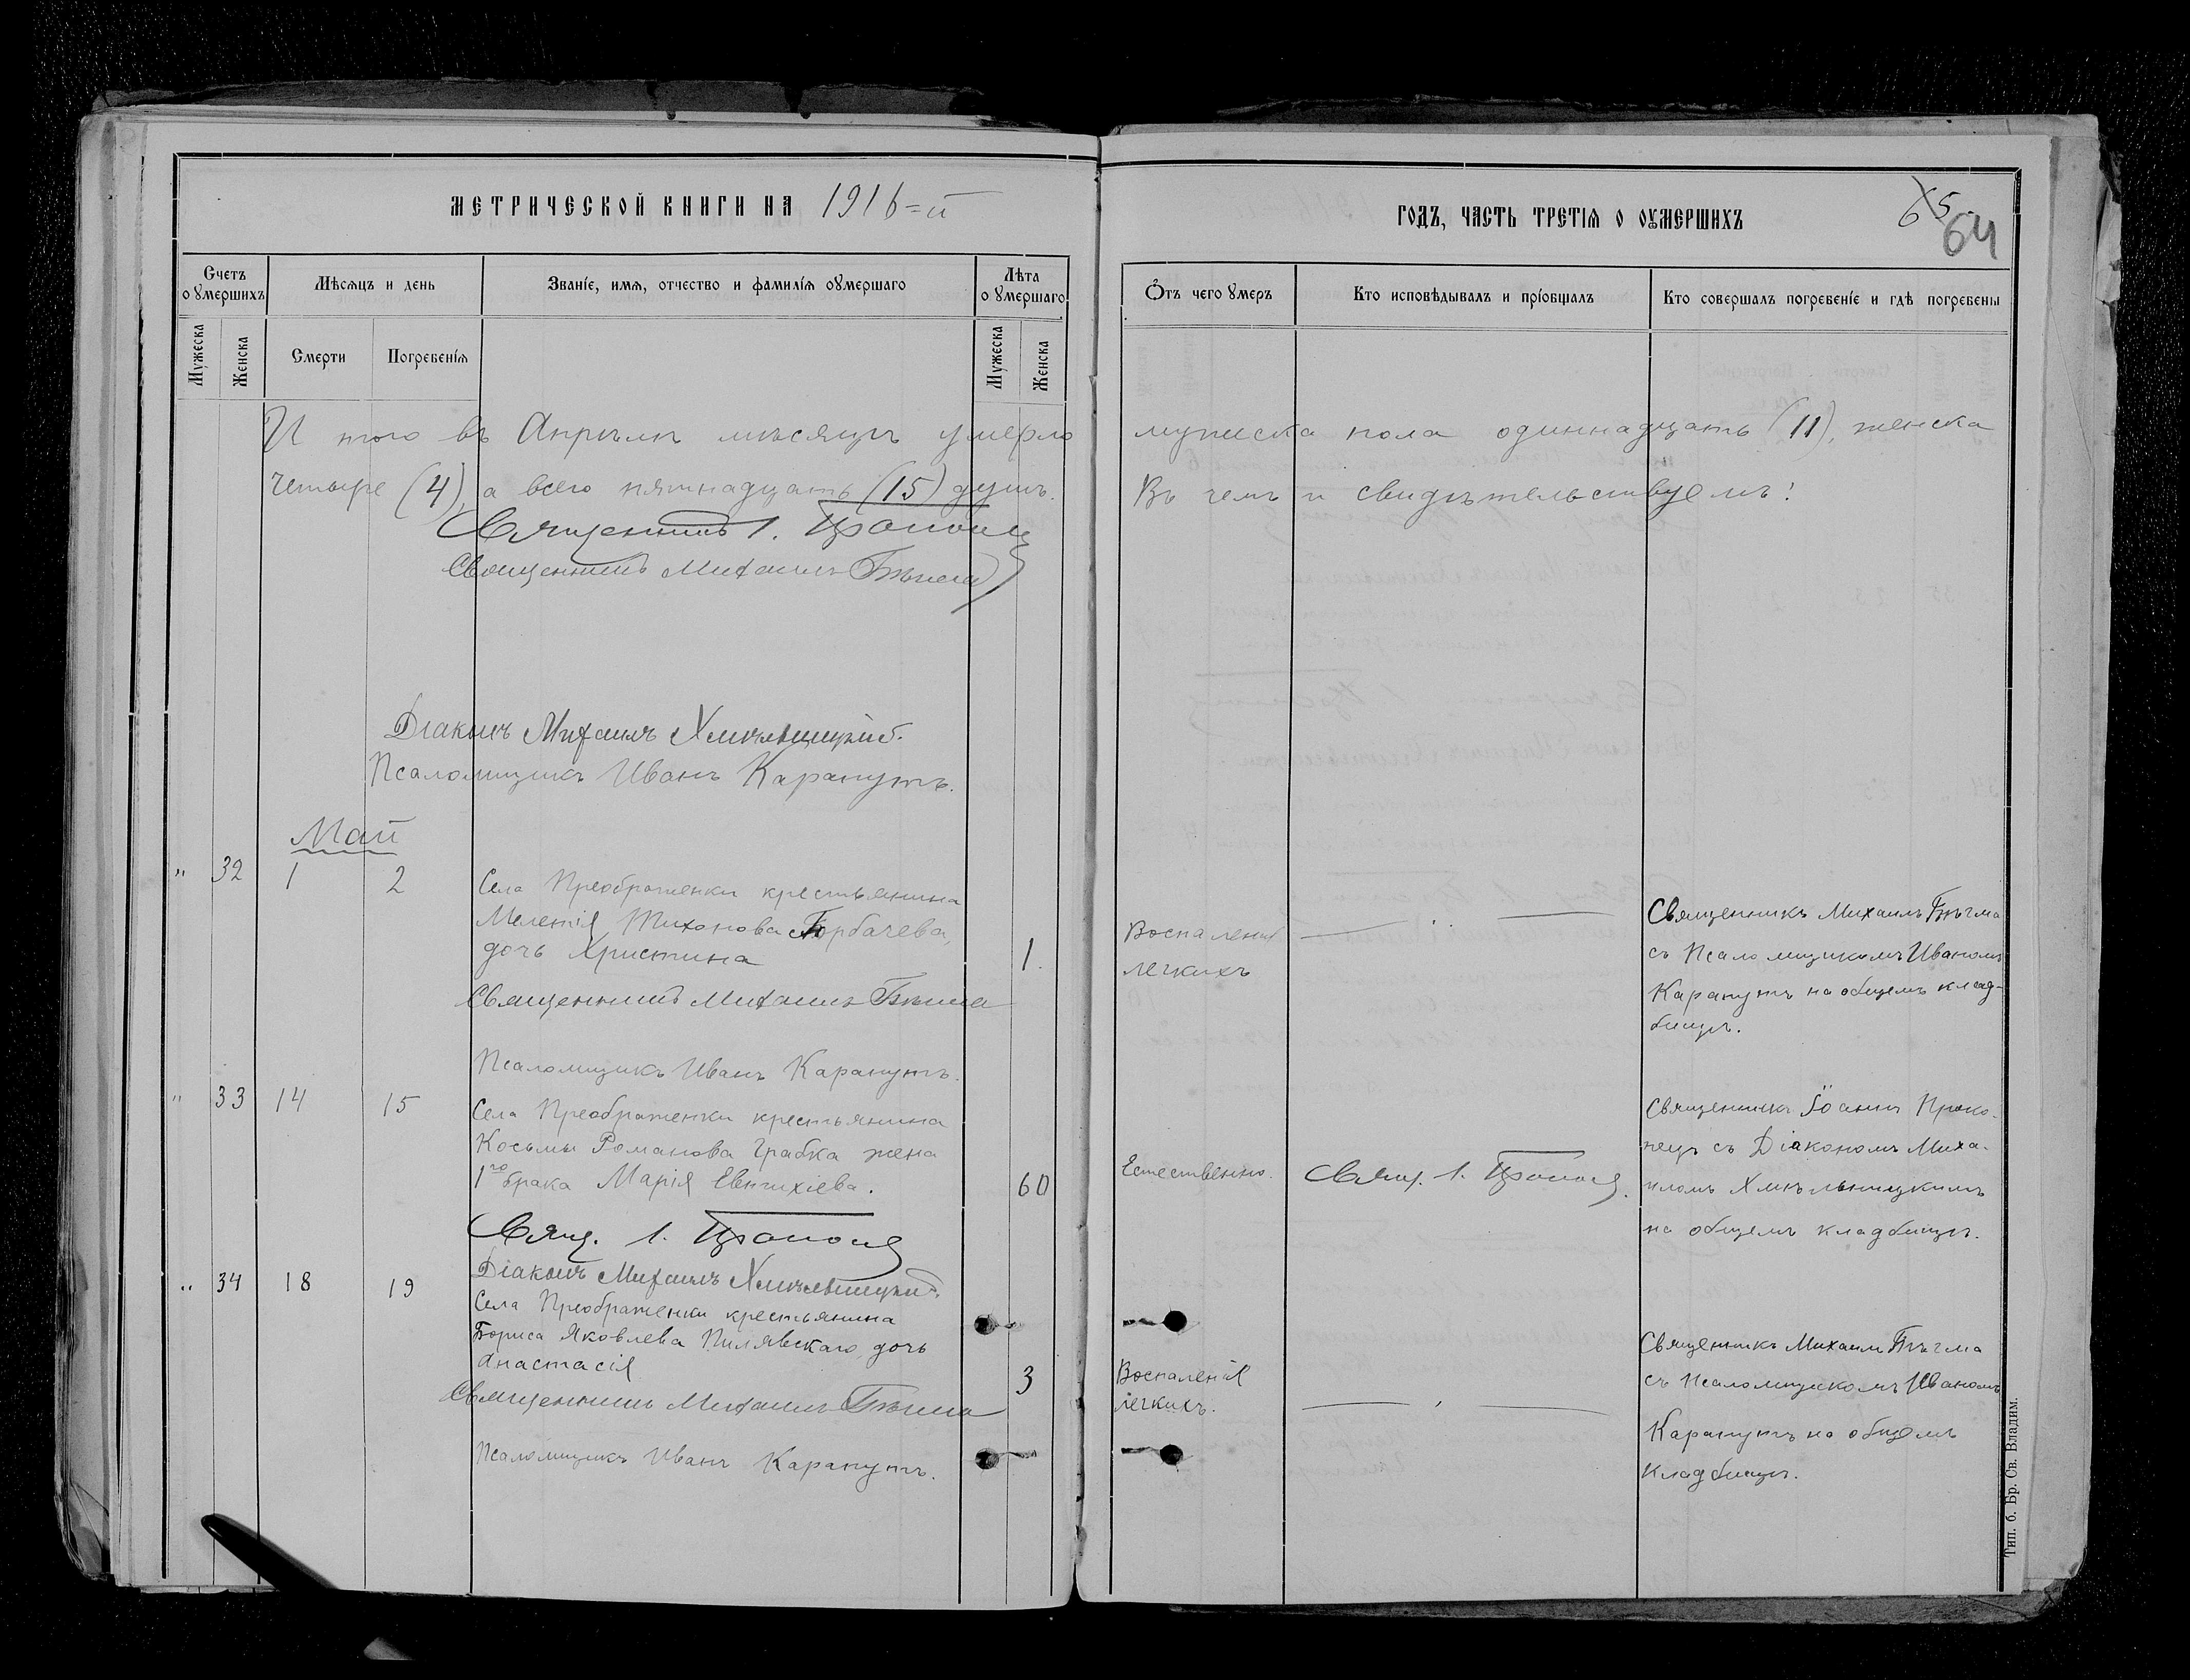 МЕТРИЧЕСКОЙ КНИГИ НА 1916=й
Счетъ оумершихъ
Мѣсяцъ и день
Званіе, имя, отчество и фамилія оумершаго
Лѣта оумершаго
Мужеска
Женска
Смерти
Погребенія
Мужеска
Женска
И того въ Апрѣлѣ мѣсяцѣ умерло
четыре (4), а всего пятнадцать (15) душъ.
Священникъ І. Прокопецъ
Священникъ Михаилъ Бѣгма
Діаконъ Михаилъ Хмѣльницкій.
Псаломщикъ Иванъ Карапутъ.
Май
" 32 1 2
Села Преображенки крестьянина
Мелетія Тихонова Горбачева,
дочь Христина 1.
Священникъ Михаилъ Бѣгма
Псаломщикъ Иванъ Карапутъ.
" 33 14 15
Села Преображенки крестьянина
Косьмы Романова Грабка жена
1го брака Марія Евтихіева. 60
Свящ. І. Прокопецъ
Діаконъ Михаилъ Хмѣльницкій.
" 34 18 19
Села Преображенки крестьянина
Бориса Яковлева Пилявскаго, дочь
Анастасія 3
Священникъ Михаилъ Бѣгма
Псаломщикъ Иванъ Карапутъ.
ГОДЪ, ЧАСТЬ ТРЕТІЯ О ОУМЕРШИХЪ
65
64
Отъ чего умеръ
Кто исповѣдывалъ и пріобщалъ
Кто совершалъ погребеніе и гдѣ погребены
мужеска пола одиннадцать (11), женска
Въ чемъ и свидѣтельствуемъ:
Воспаленія
легкихъ
Священникъ Михаилъ Бѣгма
съ Псаломщикомъ Иваномъ
Карапутъ на общемъ клад-
бищѣ.
Естественно.
Свящ. І. Прокопецъ.
Священникъ Іоаннъ Проко-
пецъ съ Діакономъ Миха-
иломъ Хмѣльницкимъ
на общемъ кладбищѣ.
Воспаленія
легкихъ.
Священникъ Михаилъ Бѣгма
съ Псаломщикомъ Иваномъ
Карапутъ на общемъ
кладбищѣ.
Тип. б. Бр. Св. Владим.